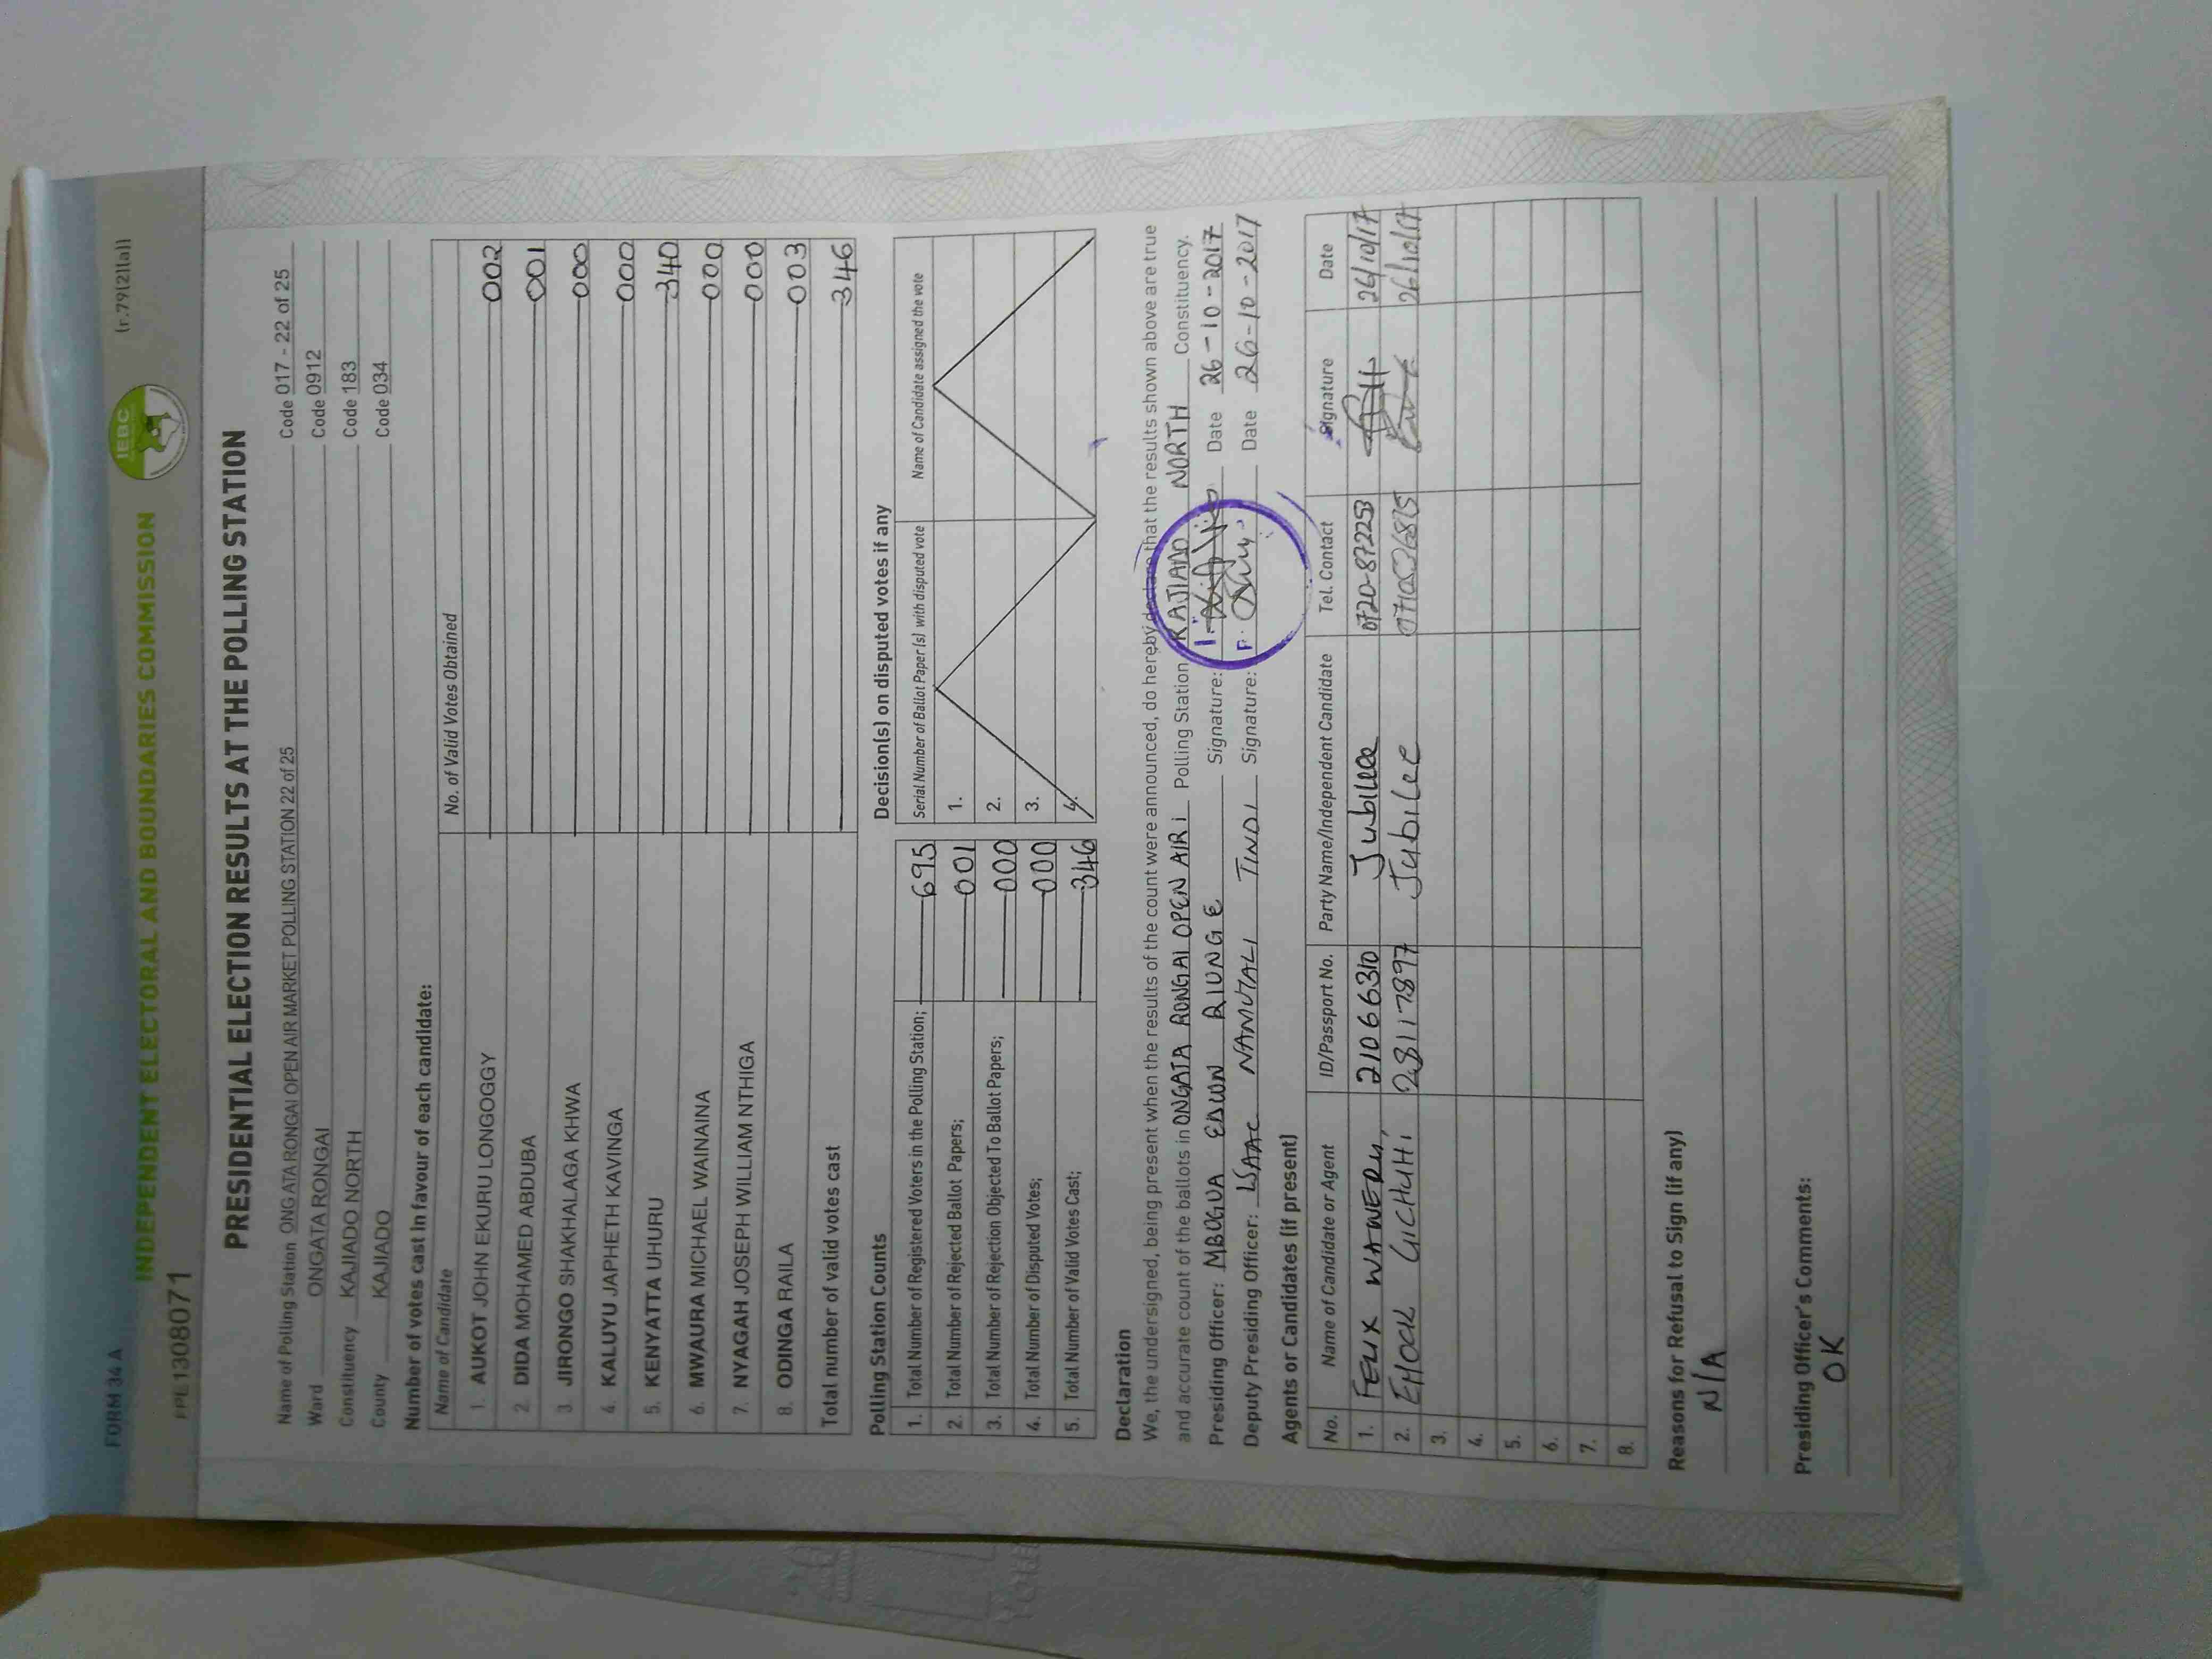 FORM 34 A
(r.79(2)(a))
INDEPENDENT ELECTORAL AND BOUNDARIES COMMISSION
IEBC
PPE 1308071
PRESIDENTIAL ELECTION RESULTS AT THE POLLING STATION
Name of Polling Station ONGATA RONGAI OPEN AIR MARKET POLLING STATION 22 of 25 Code 017 - 22 of 25
Ward ONGATA RONGAI Code 0912
Constituency KAJIADO NORTH Code 183
County KAJIADO Code 034
Number of votes cast in favour of each candidate:
Name of Candidate No. of Valid Votes Obtained
1. AUKOT JOHN EKURU LONGOGGY 002
2. DIDA MOHAMED ABDUBA 001
3. JIRONGO SHAKHALAGA KHWA 000
4. KALUYU JAPHETH KAVINGA 000
5. KENYATTA UHURU 340
6. MWAURA MICHAEL WAINAINA 000
7. NYAGAH JOSEPH WILLIAM NTHIGA 000
8. ODINGA RAILA 003
Total number of valid votes cast 346
Polling Station Counts
1. Total Number of Registered Voters in the Polling Station; 695
2. Total Number of Rejected Ballot Papers; 001
3. Total Number of Rejection Objected To Ballot Papers; 000
4. Total Number of Disputed Votes; 000
5. Total Number of Valid Votes Cast; 346
Decision(s) on disputed votes if any
Serial Number of Ballot Paper (s) with disputed vote Name of Candidate assigned the vote
1.
2.
3.
4.
Declaration
We, the undersigned, being present when the results of the count were announced, do hereby declare that the results shown above are true
and accurate count of the ballots in ONGATA RONGAI OPEN AIR 1 Polling Station KAJIADO NORTH Constituency.
Presiding Officer: MBOGUA EDWIN RIUNGE Signature: Date 26-10-2017
Deputy Presiding Officer: ISAAC NAMUTALI TINDI Signature: Date 26-10-2017
Agents or Candidates (if present)
No. Name of Candidate or Agent ID/Passport No. Party Name/Independent Candidate Tel. Contact Signature Date
1. FELIX WAWERU 21066310 Jubilee 0720-872253 26/10/17
2. ENOCK GICHUHI 28117897 Jubilee 26/10/17
3.
4.
5.
6.
7.
8.
Reasons for Refusal to Sign (if any)
N/A
Presiding Officer's Comments:
OK